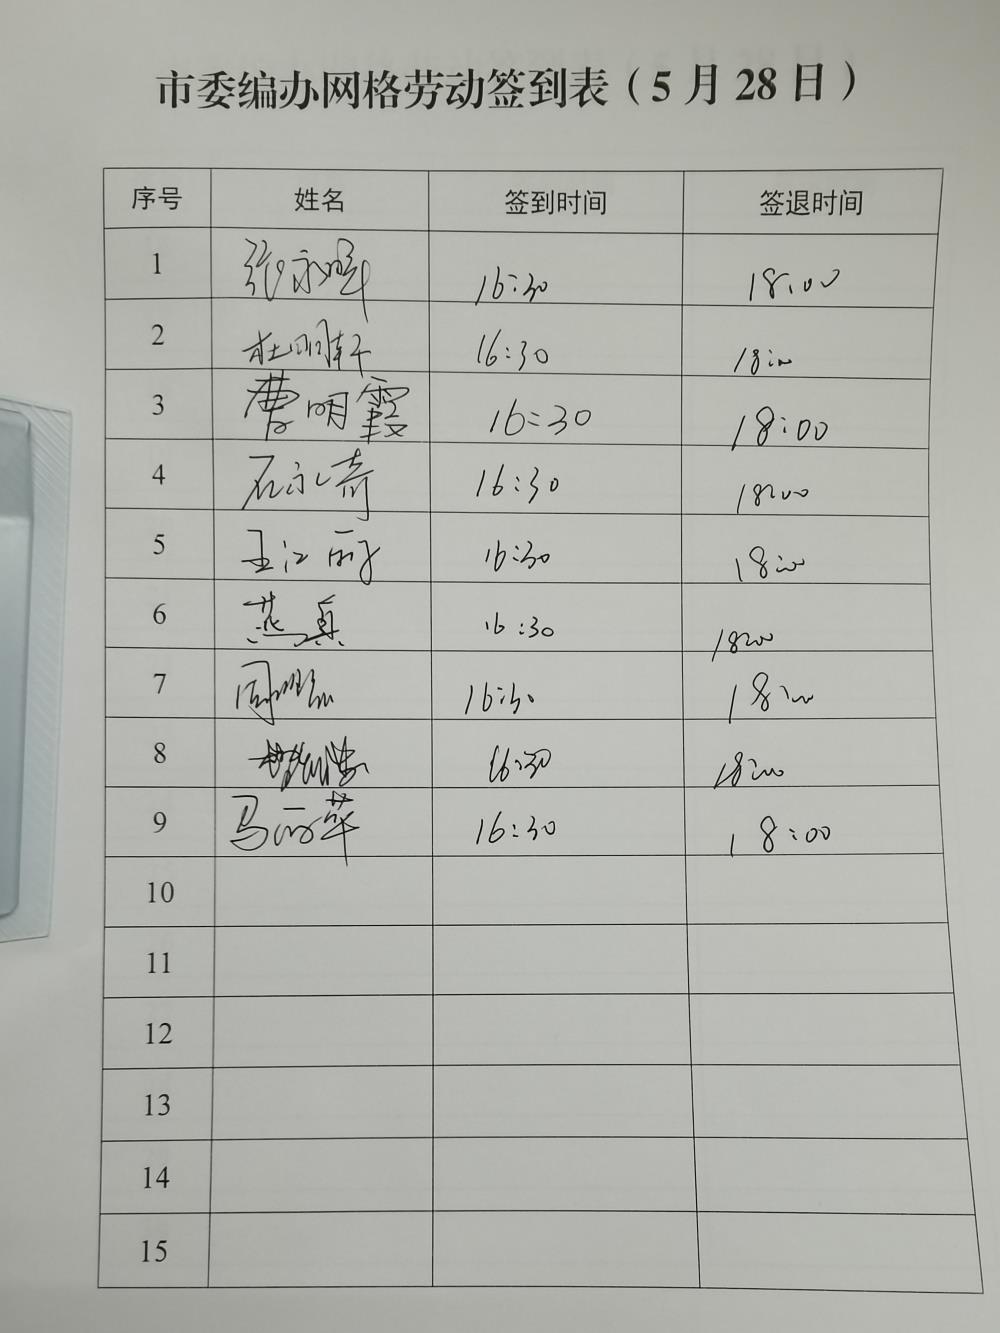 市委编办网格劳动签到表（5月28日）
序号 姓名 签到时间 签退时间
1 张永晖 16:30 18:00
2 杜明轩 16:30 18:00
3 曹明霞 16:30 18:00
4 石永奇 16:30 18:00
5 王江丽 16:30 18:00
6 燕真 16:30 18:00
7 16:30 18:00
8 16:30 18:00
9 马丽萍 16:30 18:00
10
11
12
13
14
15